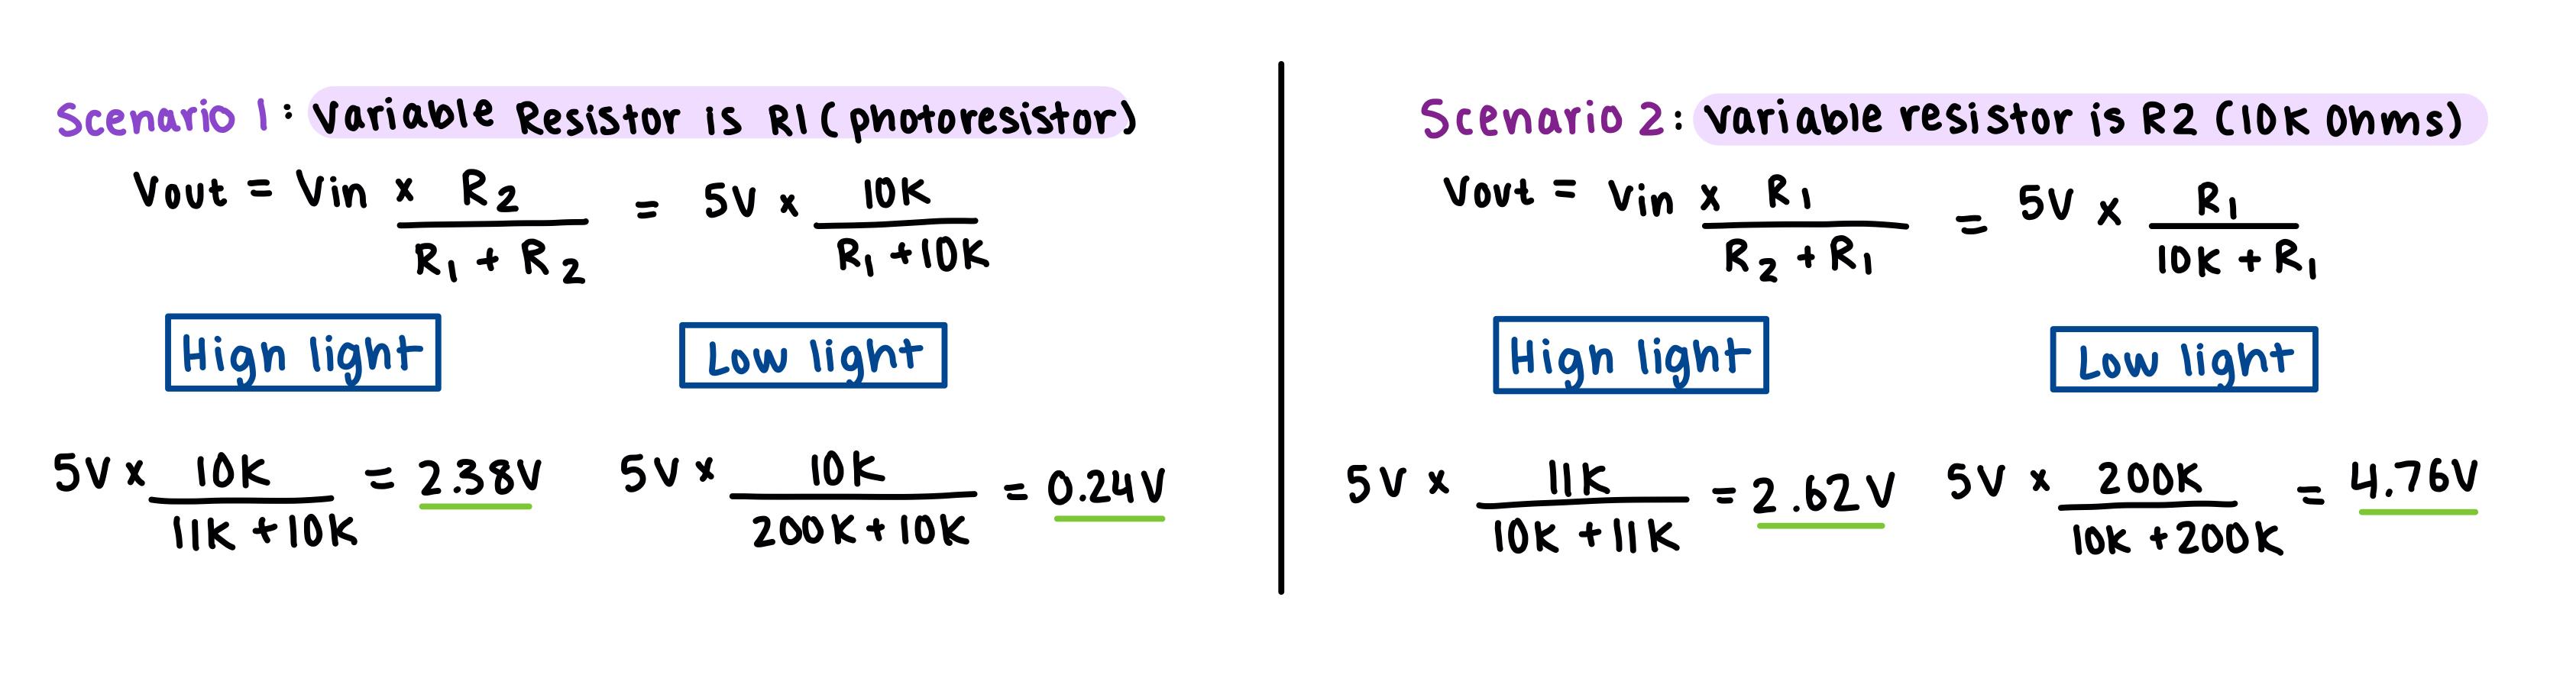 Scenario 1: Variable Resistor is R1 (photoresistor)
Vout = Vin x R2 / R1 + R2 = 5V x 10K / R1 + 10K
High light
Low light
5V x 10K / 11K + 10K = 2.38V
5V x 10K / 200K + 10K = 0.24V
Scenario 2: variable resistor is R2 (10K Ohms)
Vout = Vin x R1 / R2 + R1 = 5V x R1 / 10K + R1
High light
Low light
5V x 11K / 10K + 11K = 2.62V
5V x 200K / 10K + 200K = 4.76V